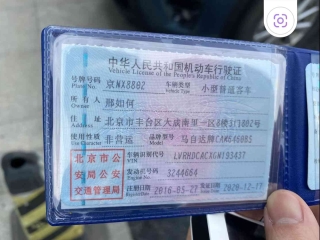 中华人民共和国机动车行驶证
Vehicle License of the People's Republic of China
号牌号码 京NX8802 车辆类型 小型普通客车
Plate No. Vehicle Type
所有人 邢如何
Owner
住址 北京市丰台区大成南里一区6楼5门802号
Address
使用性质 非营运 品牌型号 马自达牌
Use Character Model
北京市公
安局公安
交通管理局
车辆识别代号
VIN
发动机号码 3244664
Engine No.
注册日期 2016-05-23 发证日期